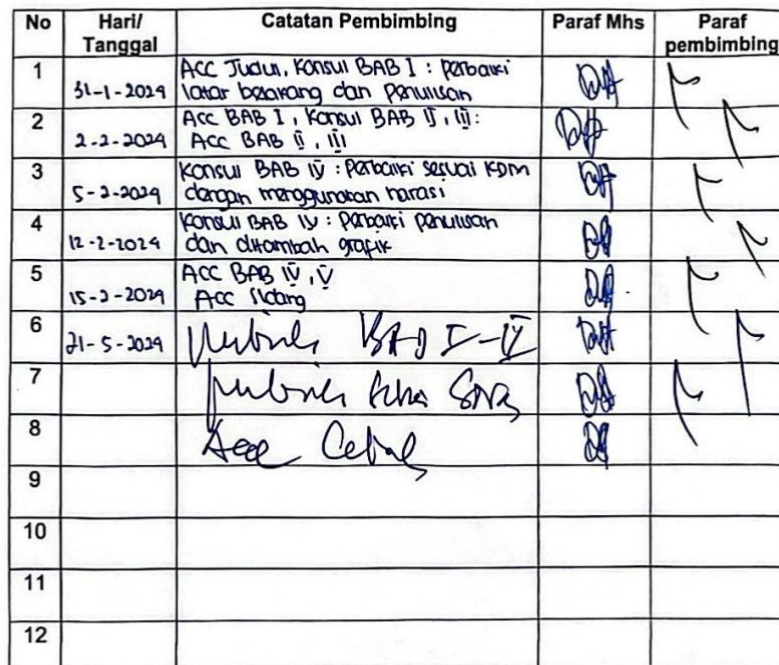 No Hari/ Tanggal Catatan Pembimbing Paraf Mhs Paraf pembimbing
1 31-1-2024 ACC Judul, Konsul BAB I : perbaiki
latar belakang dan penulisan
2 2-2-2024 ACC BAB I, Konsul BAB II, III:
ACC BAB II, III
3 5-2-2024 Konsul BAB IV : Perbaiki sesuai KDM
dengan menggunakan narasi
4 12-2-2024 Konsul BAB IV : Perbaiki penulisan
dan ditambah grafik
5 15-2-2024 ACC BAB IV, V
ACC Sidang
6 21-5-2024 BAB I-IV
7
8 Acc
9
10
11
12